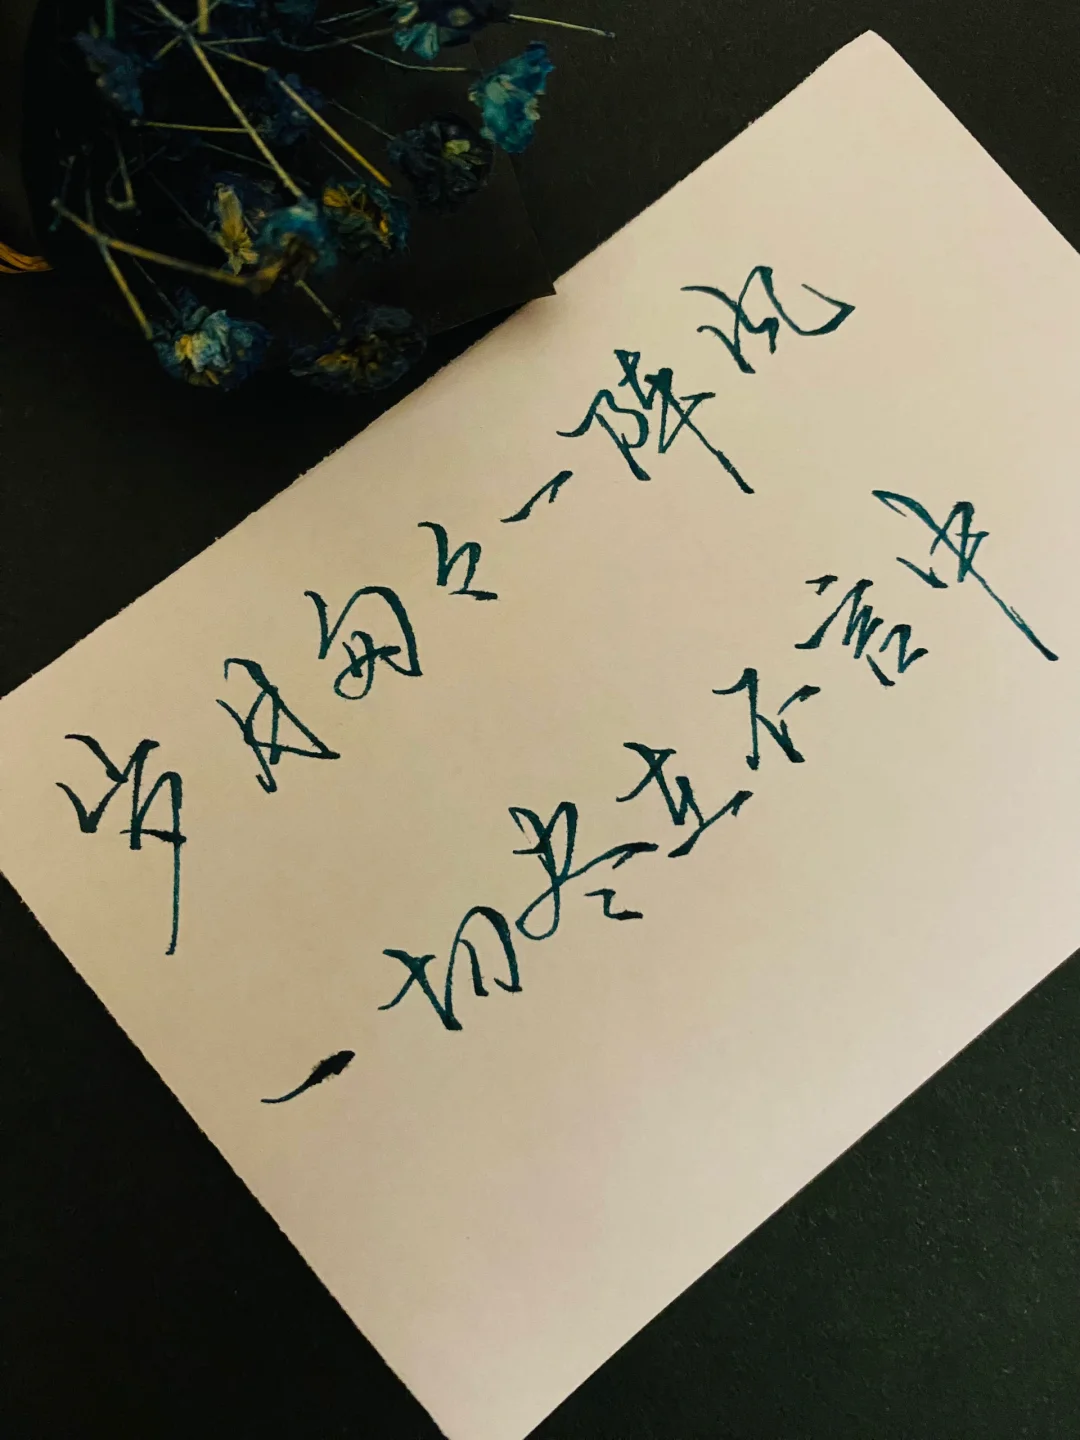 岁月匆匆一阵风
一切尽在不言中